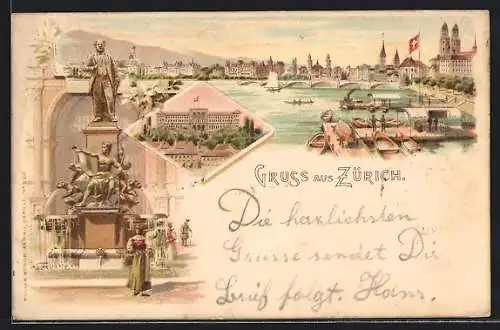 GRUSS AUS ZÜRICH.
Die herzlichsten
Grusse sendet Dir
Brief folgt. Hans.